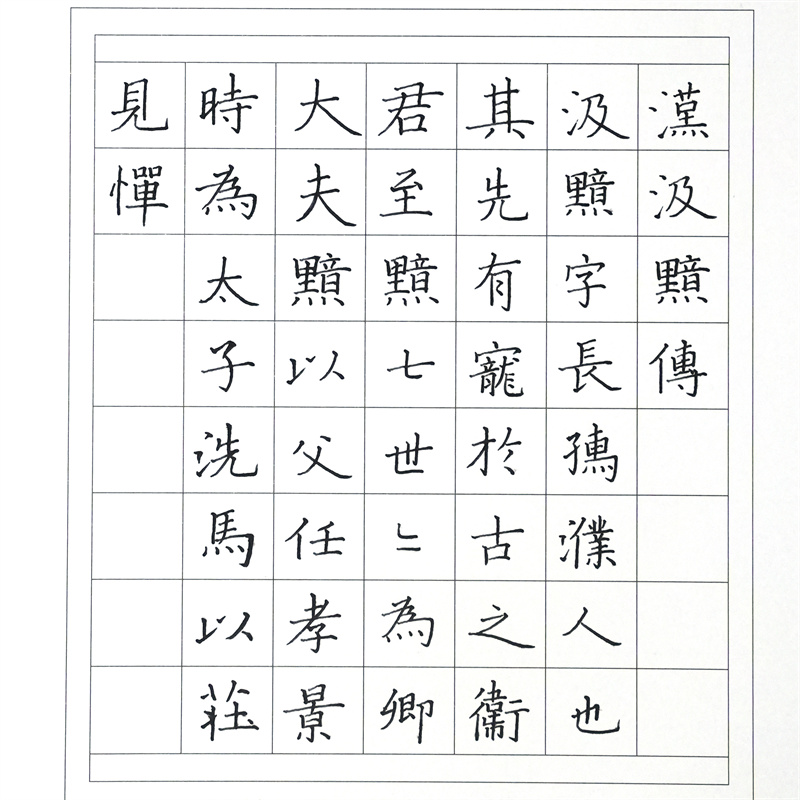 漢汲黯傳
汲黯字長孺濮人也
其先有寵於古之衛
君至黯七世〻為卿
大夫黯以父任孝景
時為太子洗馬以莊
見憚